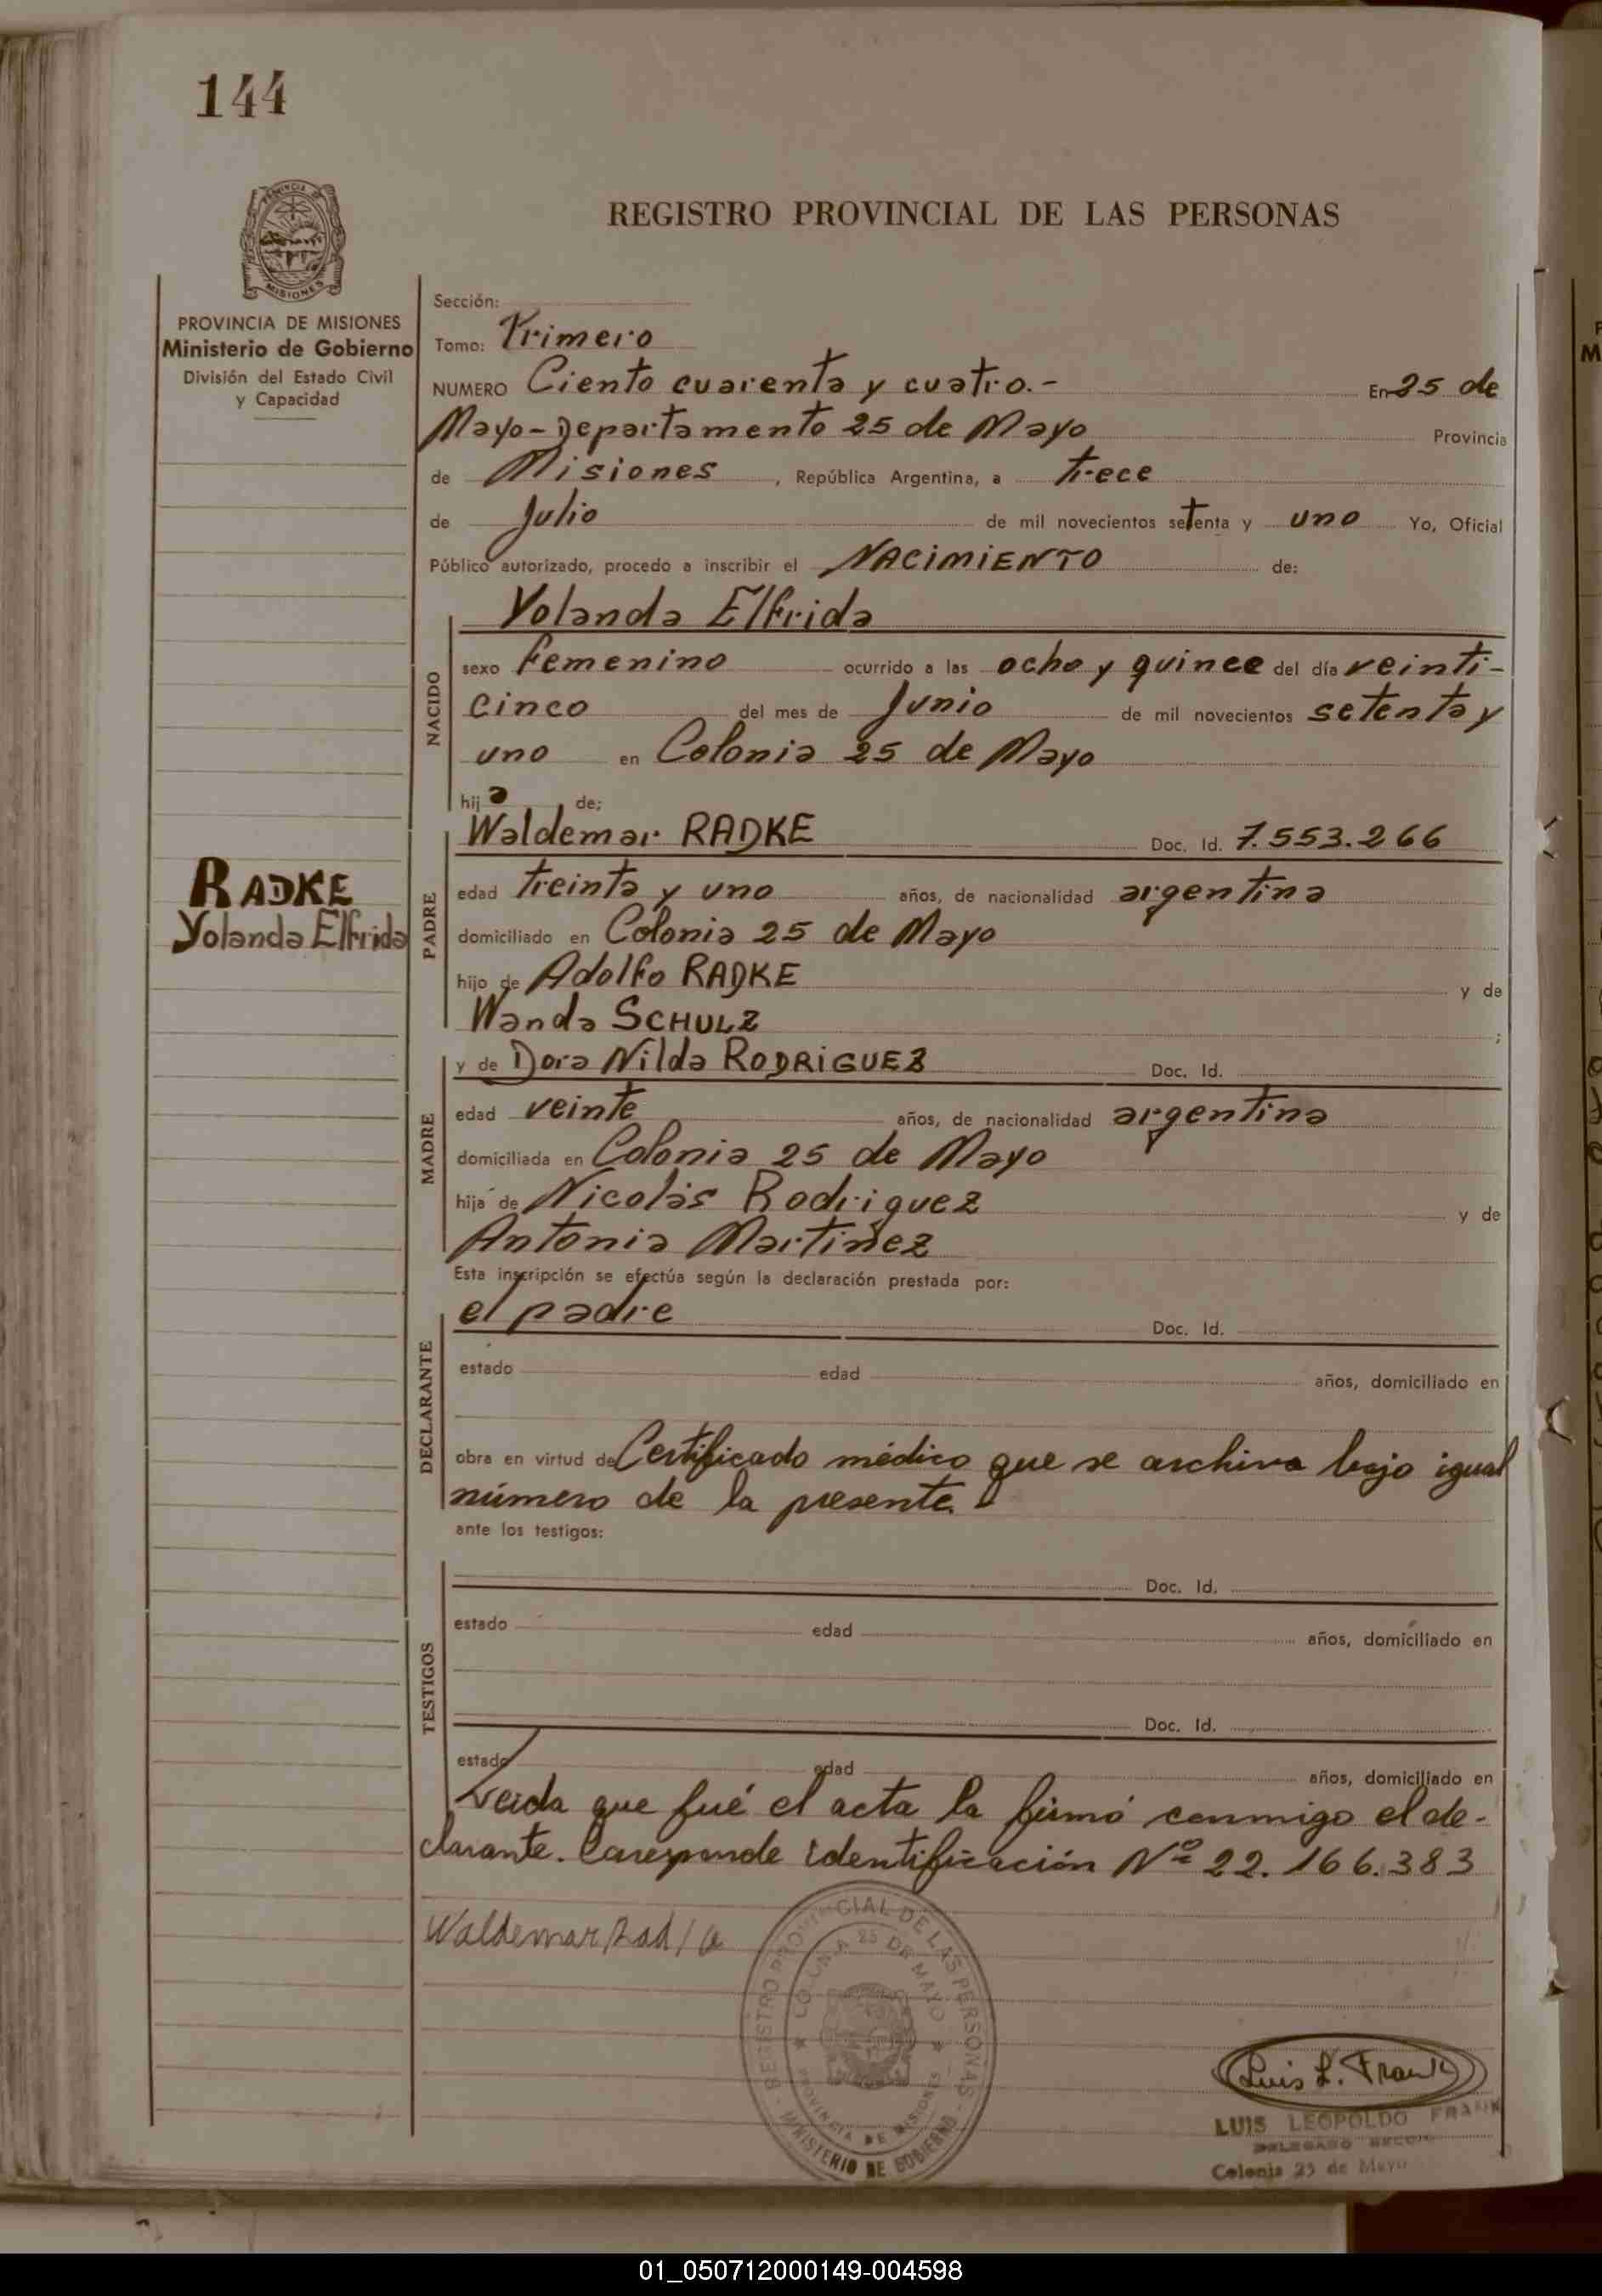 144
REGISTRO PROVINCIAL DE LAS PERSONAS
PROVINCIA DE MISIONES
Ministerio de Gobierno
División del Estado Civil
y Capacidad
Sección:
Tomo: Primero
NUMERO Ciento cuarenta y cuatro.- En 25 de
Mayo - Departamento 25 de Mayo Provincia
de Misiones, República Argentina, a trece
de Julio de mil novecientos setenta y uno Yo, Oficial
Público autorizado, procedo a inscribir el NACIMIENTO de:
NACIDO
Yolanda Elfrida
sexo femenino ocurrido a las ocho y quince del día veinti-
cinco del mes de Junio de mil novecientos setenta y
uno en Colonia 25 de Mayo
hija de:
RADKE
Yolanda Elfrida
PADRE
Waldemar RADKE Doc. Id. 7.553.266
edad treinta y uno años, de nacionalidad argentina
domiciliado en Colonia 25 de Mayo
hijo de Adolfo RADKE y de
Wanda SCHULZ ;
MADRE
y de Dora Nilda RODRIGUEZ Doc. Id.
edad veinte años, de nacionalidad argentina
domiciliada en Colonia 25 de Mayo
hija de Nicolás Rodriguez y de
Antonia Martinez
Esta inscripción se efectúa según la declaración prestada por:
DECLARANTE
el padre Doc. Id.
estado edad años, domiciliado en
obra en virtud de Certificado médico que se archiva bajo igual
número de la presente.
ante los testigos:
TESTIGOS
Doc. Id.
estado edad años, domiciliado en
Doc. Id.
estado edad años, domiciliado en
Leida que fué el acta la firmó conmigo el de-
clarante. Corresponde identificación Nº 22.166.383
Waldemar Radke
REGISTRO PROVINCIAL DE LAS PERSONAS
COLONIA 25 DE MAYO
PROVINCIA DE MISIONES
MINISTERIO DE GOBIERNO
Luis L. Frank
LUIS LEOPOLDO FRANK
DELEGADO
Colonia 25 de Mayo
01_050712000149-004598